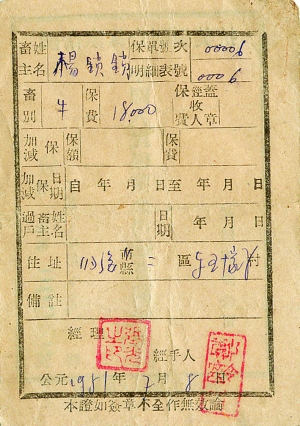 畜主姓名 楊鎖鎖 保單號次 00006
明細表號 0006
畜別 牛 保費 18,000 保費經收人蓋章
加減保 保額 保費
加減保日期 自 年 月 日至 年 月 日
過戶畜主姓名 日期 年 月 日
住址 市縣 二 區 村
備註
經理
經手人
公元1951年 7月 8日
本證如簽章不全作無效論